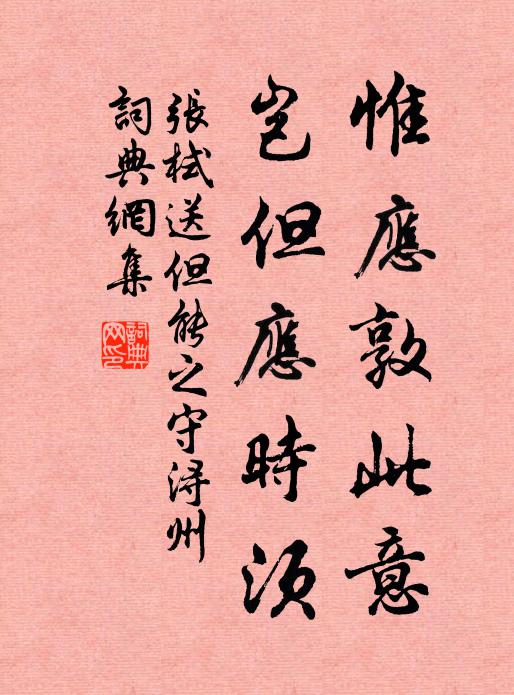 惟應敦此意
豈但應時須
張栻送但能之守潯州
詞典網集
詞典網印